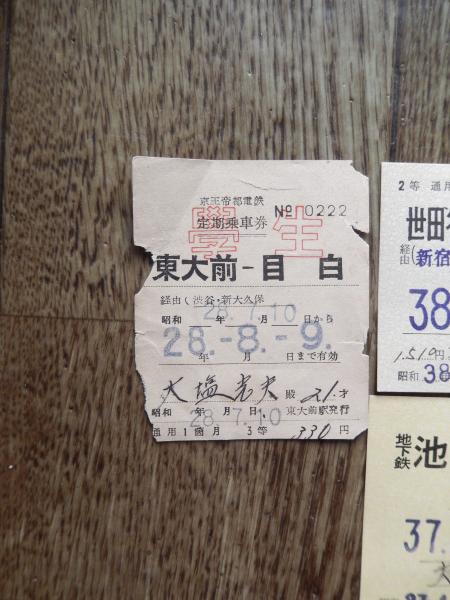 京王帝都電鉄
定期乗車券
學生
No 0222
東大前－目白
経由(渋谷・新大久保
28.7.10
昭和 年 月 日から
28.-8.-9.
年 月 日まで有効
大塩 殿 21才
昭和 年 月 日, 東大前駅発行
28 7.10
通用1箇月 3等 330円
2等 通用
世田
経由(新宿
38
1,510円
昭和 38
地下鉄 池
37.